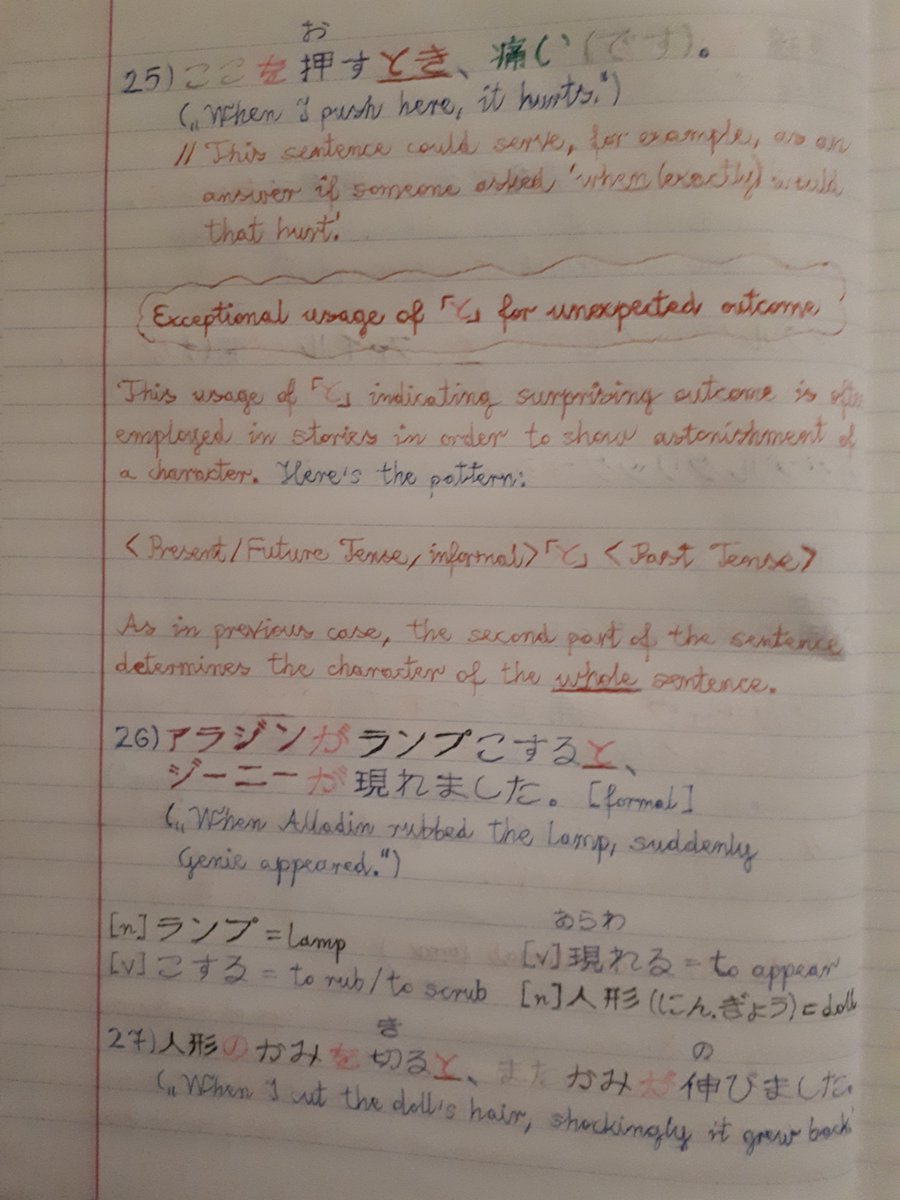 お
25) ここを押すとき、痛い(です)。
(„When I push here, it hurts.")
// This sentence could serve, for example, as an
answer if someone asked 'when (exactly) would
that hurt'.
Exceptional usage of 「と」 for unexpected outcome
This usage of 「と」 indicating surprising outcome is often
employed in stories in order to show astonishment of
a character. Here's the pattern:
<Present/Future Tense, informal>「と」<Past Tense>
As in previous case, the second part of the sentence
determines the character of the whole sentence.
26) アラジンがランプこすると、
ジーニーが現れました。 [formal]
(„When Alladin rubbed the lamp, suddenly
Genie appeared.")
[n] ランプ = lamp
あらわ
[v] 現れる = to appear
[v] こする = to rub/to scrub
[n] 人形 (にん.ぎょう) = doll
き の
27) 人形のかみを切ると、またかみが伸びました。
(„When I cut the doll's hair, shockingly it grew back